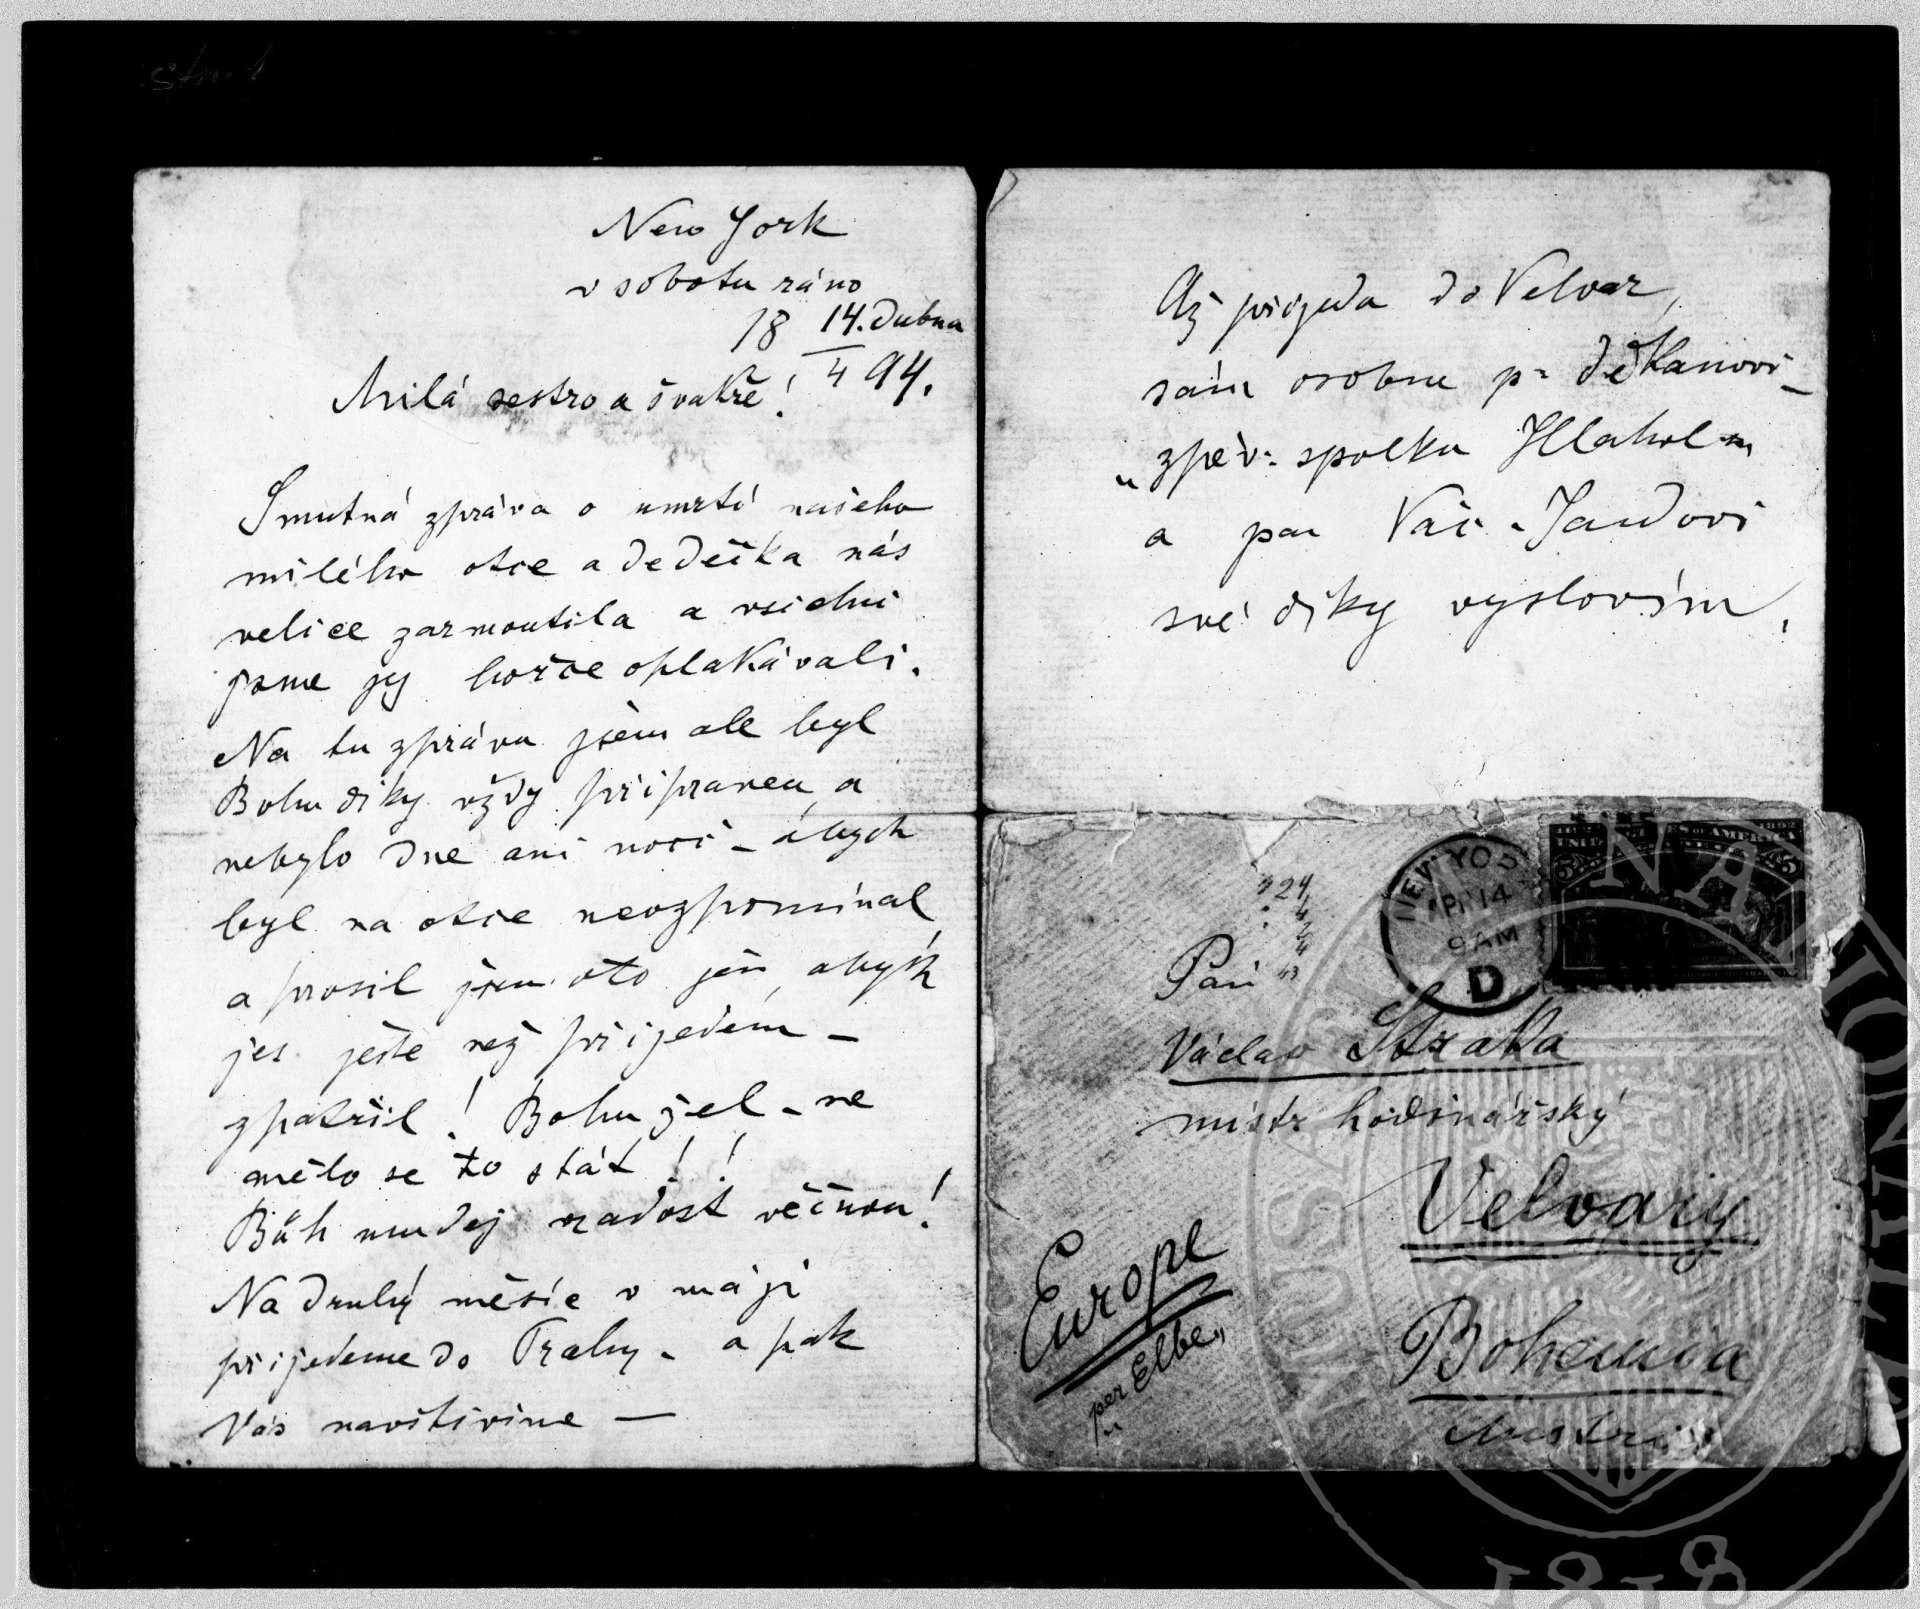 New York
v sobotu ráno
14. dubna
18 4 94.
Milá sestro a švakře!
Smutná zpráva o umrtí našeho
milého otce a dědečka nás
velice zarmoutila a všichni
jsme jej hořce oplakávali.
Na tu zprávu jsem ale byl
Bohu díky vždy připraven a
nebylo dne ani noci – abych
byl na otce nevzpomínal
a prosil jsem oto jen abych
jej ještě než přijedem –
zpatřil! Bohužel – ne
mělo se to stát!!
Bůh mu dej radost věčnou!
Na druhý měsíc v máji
přijedeme do Prahy – a pak
Vás navštívíme —
Až přijedu do Velvar,
sám osobně p. děkanovi –
„zpěv: spolku Hlahol
a pan Vác. Jandovi
své díky vyslovím.
NEW YO
APR 14
9 AM
D
Pan
Václav Straka
mistr hodinářský
Velvary
Bohemia
Austria
Europe
per Elbe„
MUSAEUM NATIONALE
1818